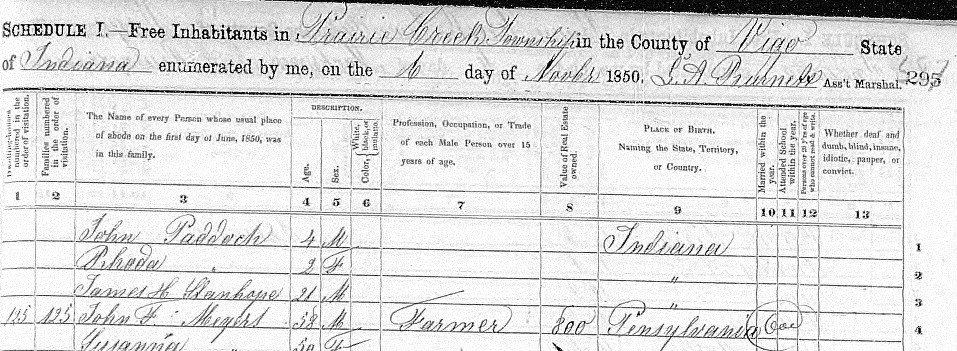 SCHEDULE I.—Free Inhabitants in Prairie Creek Township in the County of Vigo State
of Indiana enumerated by me, on the 6 day of Novbr 1850. Ass't Marshal. 295
Dwelling-houses numbered in the order of visitation.
Families numbered in the order of visitation.
The Name of every Person whose usual place of abode on the first day of June, 1850, was in this family.
DESCRIPTION.
Age.
Sex.
Color, White, black, or mulatto.
Profession, Occupation, or Trade of each Male Person over 15 years of age.
Value of Real Estate owned.
PLACE OF BIRTH.
Naming the State, Territory, or Country.
Married within the year.
Attended School within the year.
Persons over 20 y'rs of age who cannot read & write.
Whether deaf and dumb, blind, insane, idiotic, pauper, or convict.
1 2 3 4 5 6 7 8 9 10 11 12 13
John Paddock 4 M Indiana 1
Rhoda " 2 F " 2
James H Stanhope 21 M " 3
125 125 John F. Meyers 58 M Farmer 800 Pensylvania 4
Susanna " 50 F